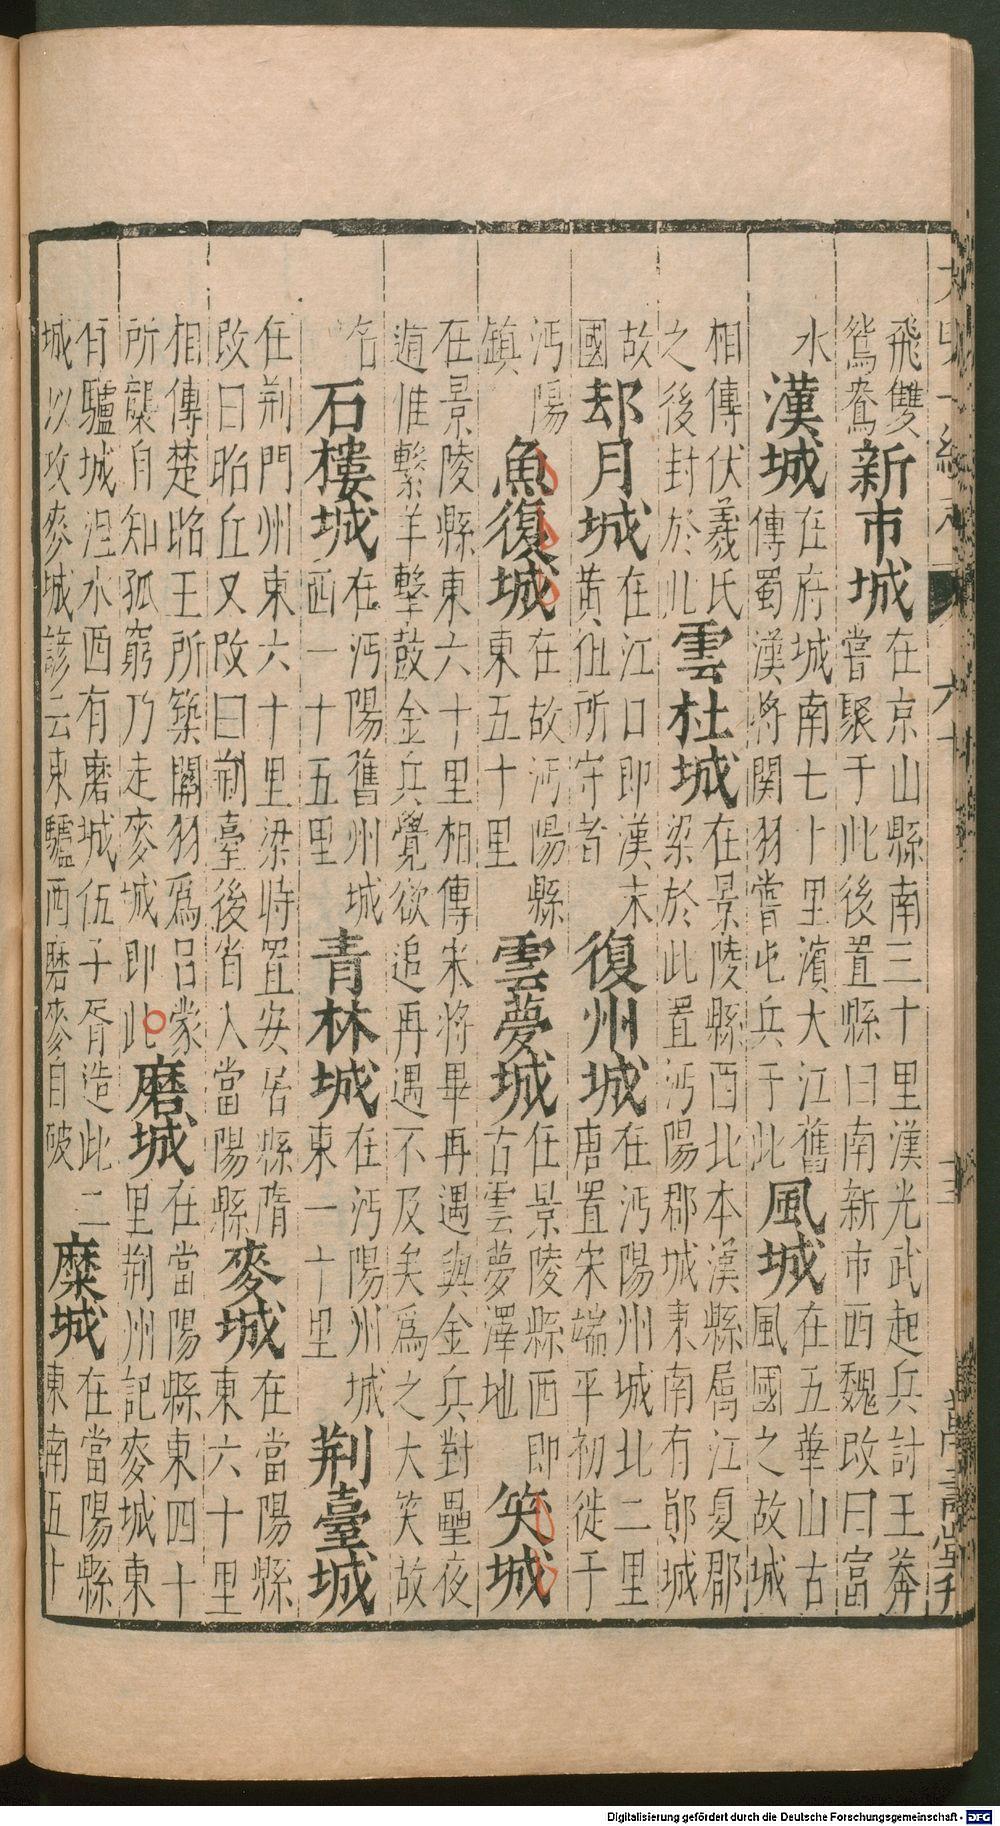 飛雙鴛鴦 新市城 在京山縣南三十里漢光武起兵討王莽嘗聚于此後置縣曰南新市西魏改曰富
水 漢城 在府城南七十里濱大江舊傳蜀漢將関羽嘗屯兵于此 風城 在五華山古風國之故城
相傳伏羲氏之後封於此 雲杜城 在景陵縣西北本漢縣屬江夏郡梁於此置沔陽郡城東南有鄖城
故國 却月城 在江口即漢末黃伹所守者 復州城 在沔陽州城北二里唐置宋端平初徙于
沔陽鎮 魚復城 在故沔陽縣東五十里 雲夢城 在景陵縣西即古雲夢澤地 笑城
在景陵縣東六十里相傳宋將畢再遇與金兵對壘夜遁惟繫羊擊鼓金兵覺欲追再遇不及矣爲之大笑故
名 石樓城 在沔陽舊州城西一十五里 青林城 在沔陽州城東一十里 荆臺城
在荆門州東六十里梁時置安居縣隋改曰昭丘又改曰荆臺後省入當陽縣 麥城 在當陽縣東六十里
相傳楚昭王所築關羽爲呂蒙所襲自知孤窮乃走麥城即此 磨城 在當陽縣東四十里荆州記麥城東
有驢城沮水西有磨城伍子胥造此二城以攻麥城諺云東驢西磨麥自破 糜城 在當陽縣東南五十
Digitalisierung gefördert durch die Deutsche Forschungsgemeinschaft - DFG